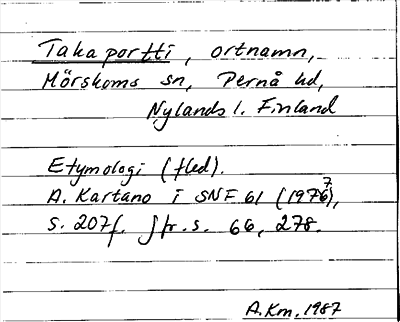 Takaportti, ortnamn,
Mörskoms sn, Pernå hd,
Nylands l. Finland
Etymologi (fled).
A. Kartano i SNF 61 (1976 7),
s. 207f. Jfr. s. 66, 278.
A.Km. 1987